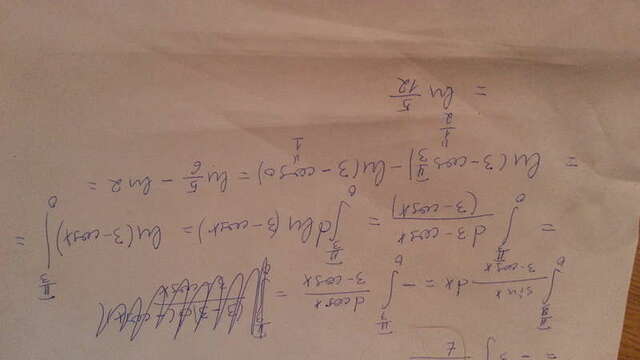 ∫_0^{π/3} sinx/(3-cosx) dx = -∫_0^{π/3} dcosx/(3-cosx) =
= ∫_0^{π/3} d3-cosx/(3-cosx) = ∫_0^{π/3} dln(3-cosx) = ln(3-cosx)|_0^{π/3} =
= ln(3-cos π/3) - ln(3-cos0) = ln 5/6 - ln2 =
1/2 1
= ln 5/12